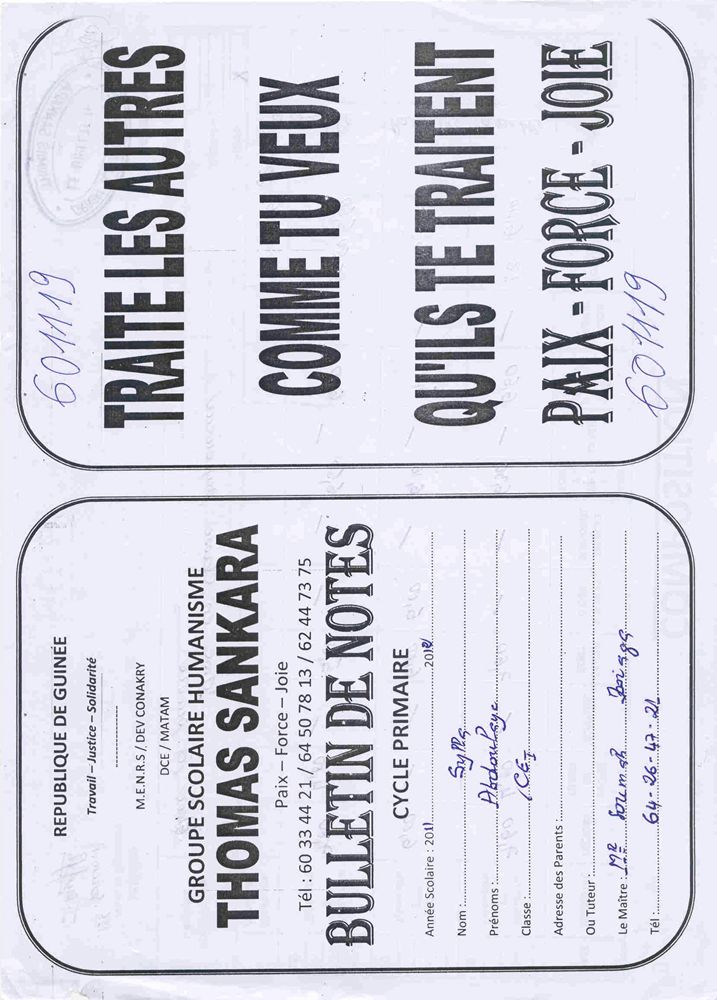 REPUBLIQUE DE GUINÉE
Travail – Justice – Solidarité
M.E.N.R.S / DEV CONAKRY
DCE / MATAM
GROUPE SCOLAIRE HUMANISME
THOMAS SANKARA
Paix – Force – Joie
Tél : 60 33 44 21 / 64 50 78 13 / 62 44 73 75
BULLETIN DE NOTES
CYCLE PRIMAIRE
Année Scolaire : 2011 2012
Nom : Sylla
Prénoms : Abdoulaye
Classe : CE1
Adresse des Parents :
Ou Tuteur :
Le Maître : Mr Soumah
Tél : 64-26-47-21
601119
TRAITE LES AUTRES
COMME TU VEUX
QU'ILS TE TRAITENT
PAIX - FORCE - JOIE
601119